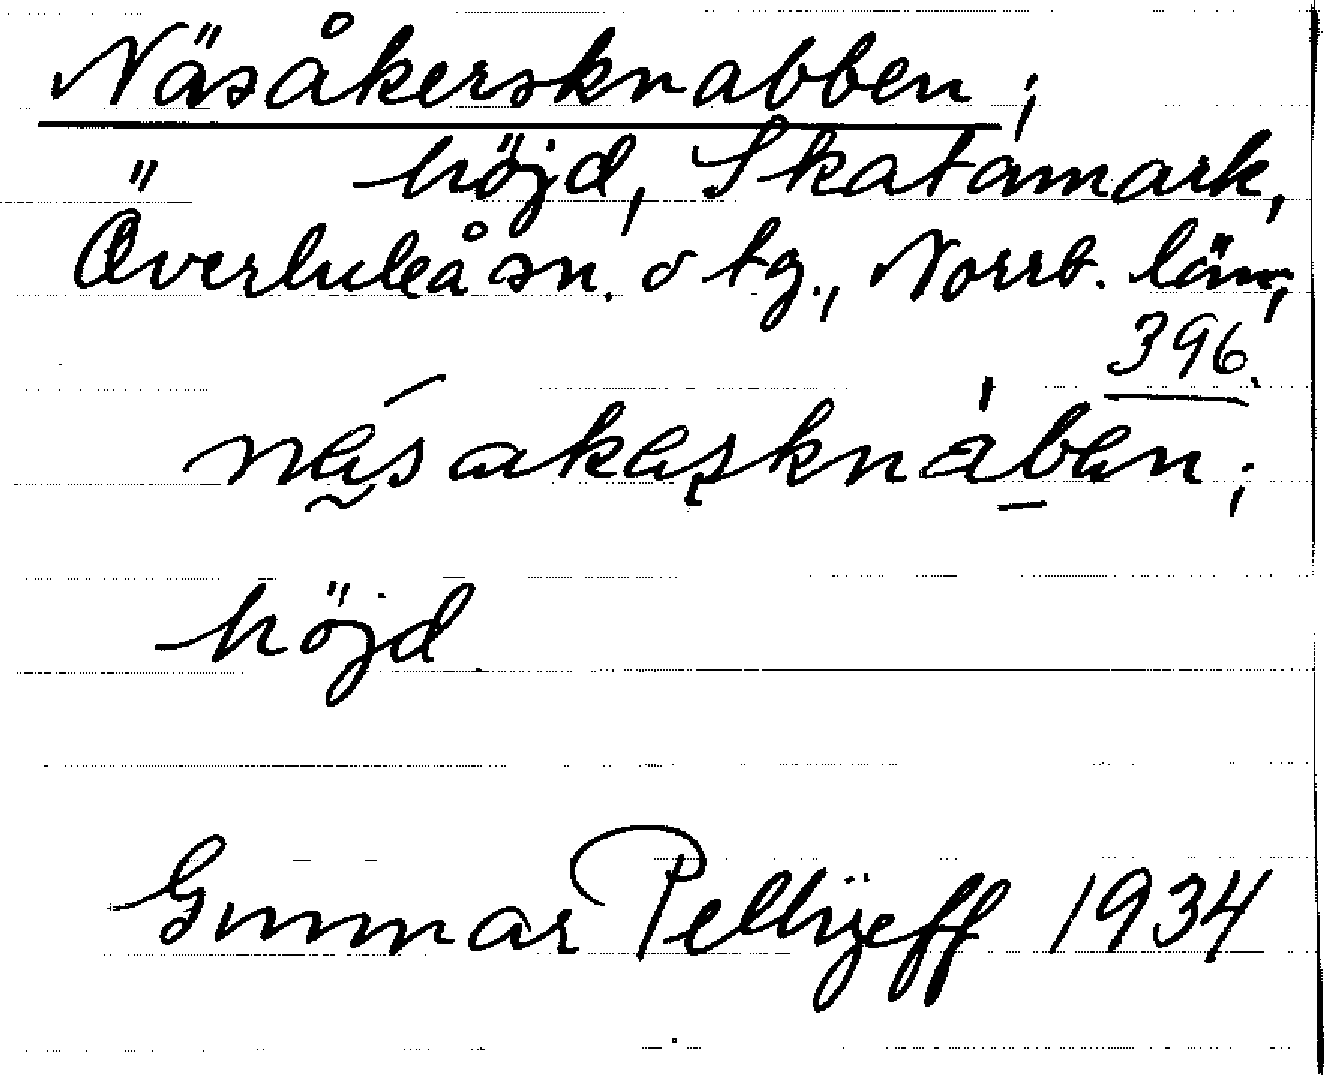 Näsåkersknabben;
höjd, Skatamark,
Överluleå sn. o tg., Norrb. län,
396.
höjd
Gunnar Pellijeff 1934